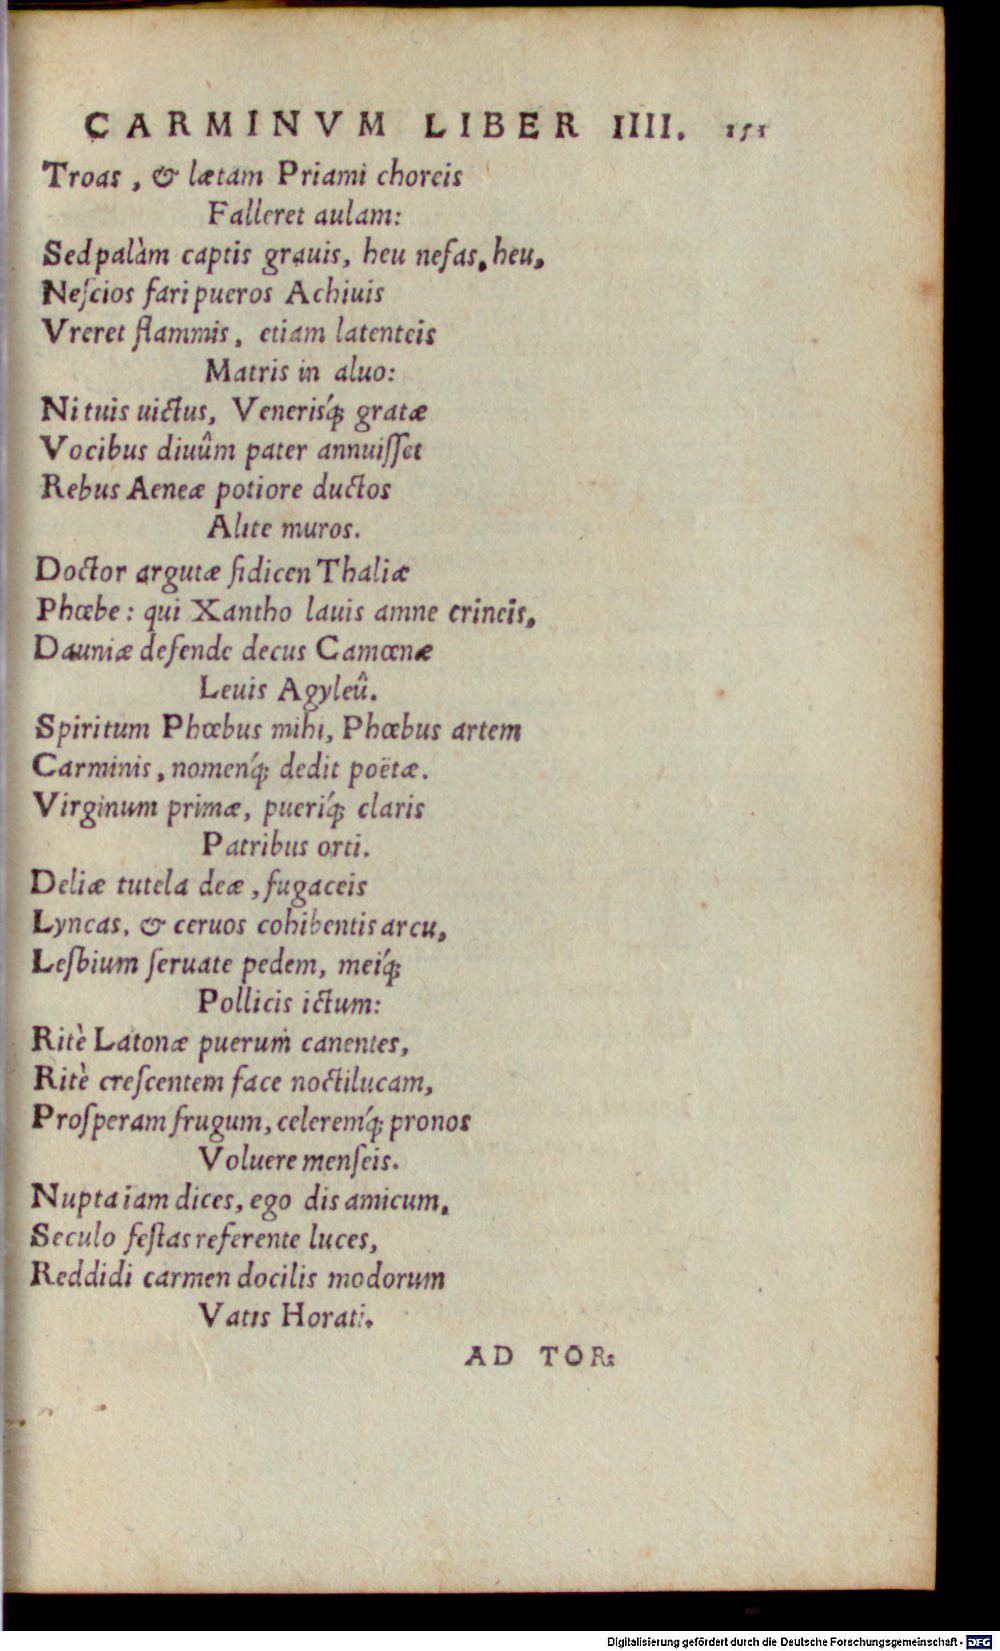 CARMINVM LIBER IIII. 151
Troas, & lætam Priami choreis
Falleret aulam:
Sed palàm captis grauis, heu nefas, heu,
Neſcios fari pueros Achiuis
Vreret flammis, etiam latenteis
Matris in aluo:
Ni tuis uictus, Veneriśq; gratæ
Vocibus diuûm pater annuiſſet
Rebus Aeneæ potiore ductos
Alite muros.
Doctor argutæ fidicen Thaliæ
Phœbe: qui Xantho lauis amne crineis,
Dauniæ defende decus Camœnæ
Leuis Agyleû.
Spiritum Phœbus mihi, Phœbus artem
Carminis, nomeńq; dedit poëtæ.
Virginum primæ, pueríq; claris
Patribus orti.
Deliæ tutela deæ, fugaceis
Lyncas, & ceruos cohibentis arcu,
Leſbium ſeruate pedem, meíq;
Pollicis ictum:
Ritè Latonæ puerum canentes,
Ritè creſcentem face noctilucam,
Proſperam frugum, celereḿq; pronos
Voluere menſeis.
Nupta iam dices, ego dis amicum,
Seculo feſtas referente luces,
Reddidi carmen docilis modorum
Vatis Horati.
AD TOR:
Digitalisierung gefördert durch die Deutsche Forschungsgemeinschaft - DFG